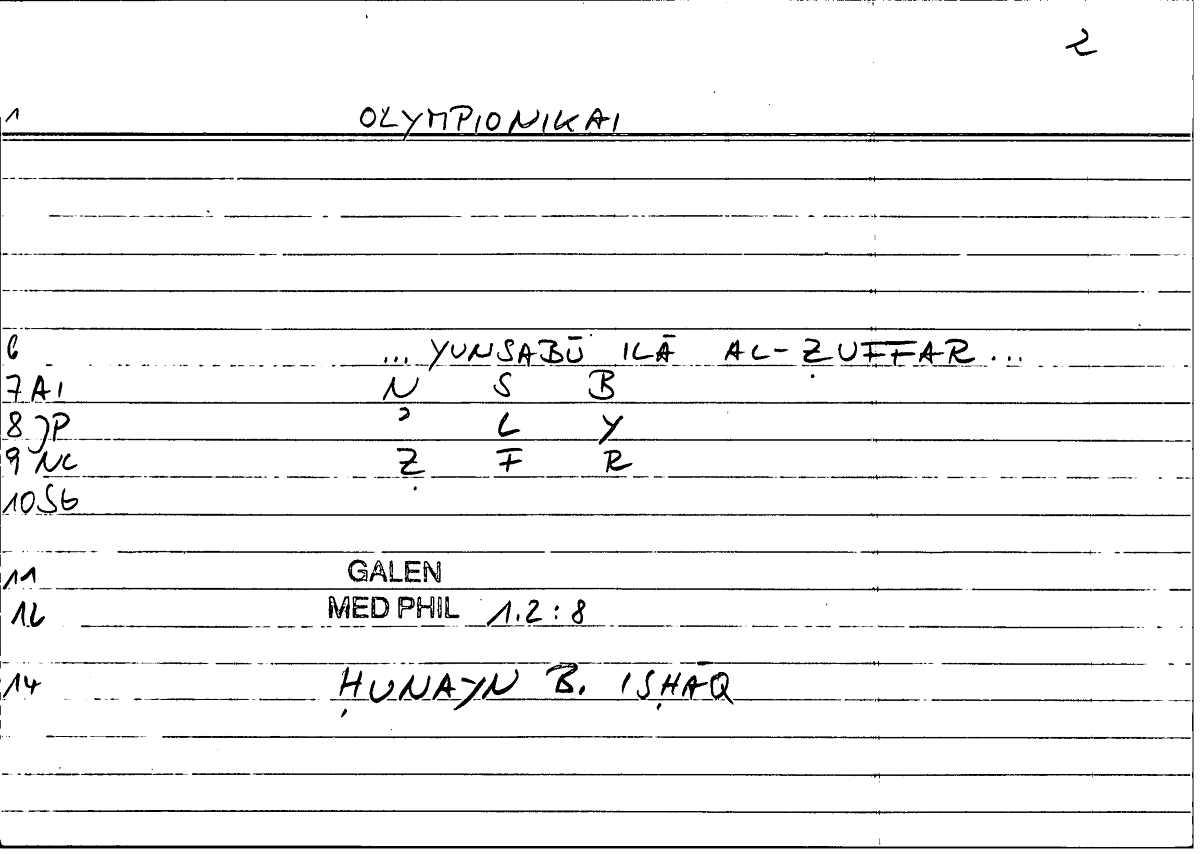 2
1 OLYMPIONIKAI
6 ... YUNSABŪ ILĀ AL-ẒUFFAR ...
7 A1 N S B
8 JP ʾ L Y
9 NC Ẓ F R
10 SG
11 GALEN
12 MED PHIL 1.2 : 8
14 ḤUNAYN B. ISḤĀQ